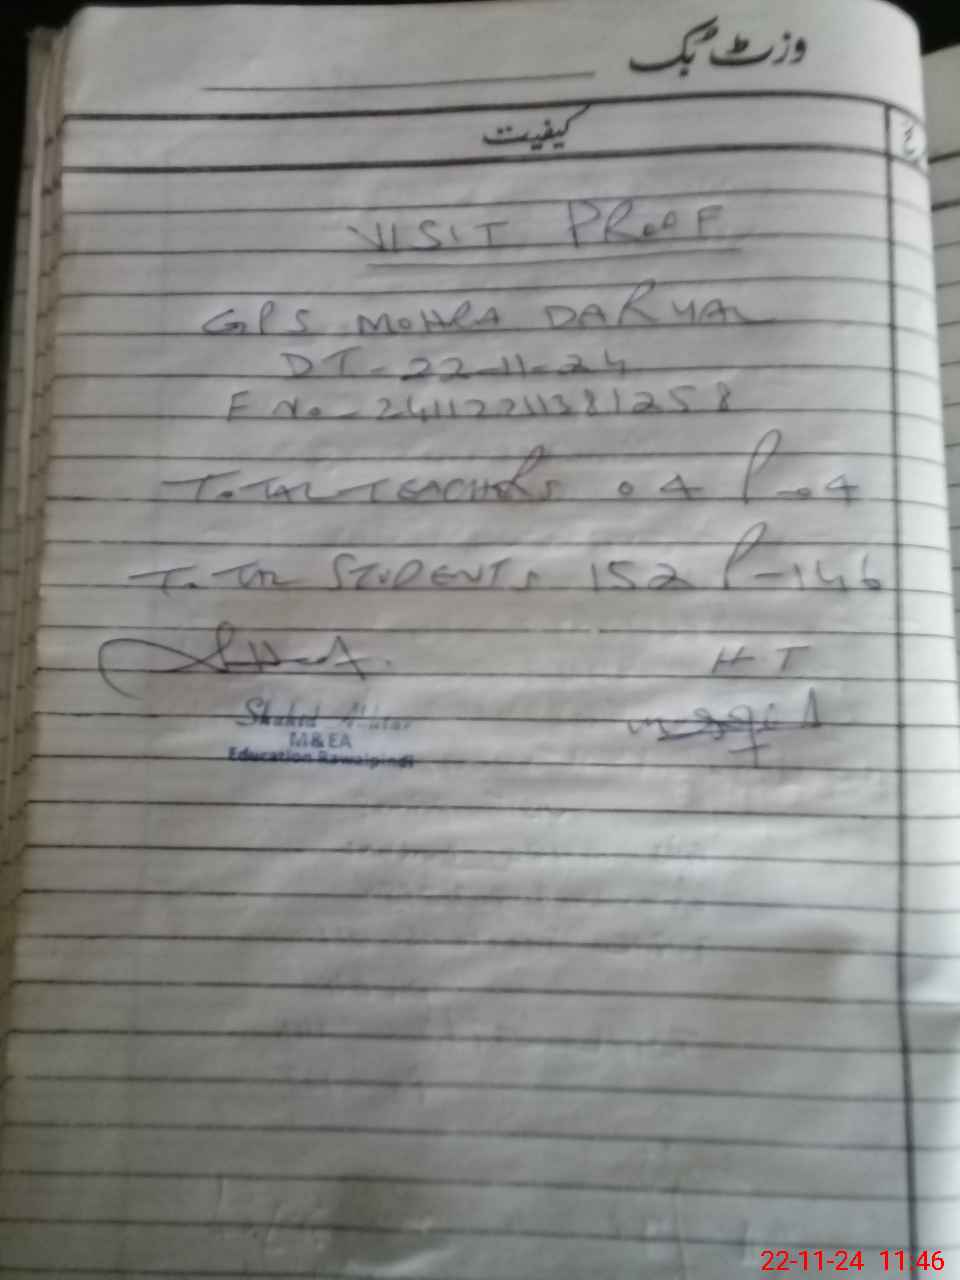 وزٹ بک
کیفیت
VISIT PROOF
GPS MOHRA DARYAL
DT-22-11-24
F No-24112211381258
TOTAL TEACHERS 04 P-04
TOTAL STUDENTS 152 P-146
H T
Shahid Akhtar
M&EA
Education Rawalpindi
22-11-24 11:46